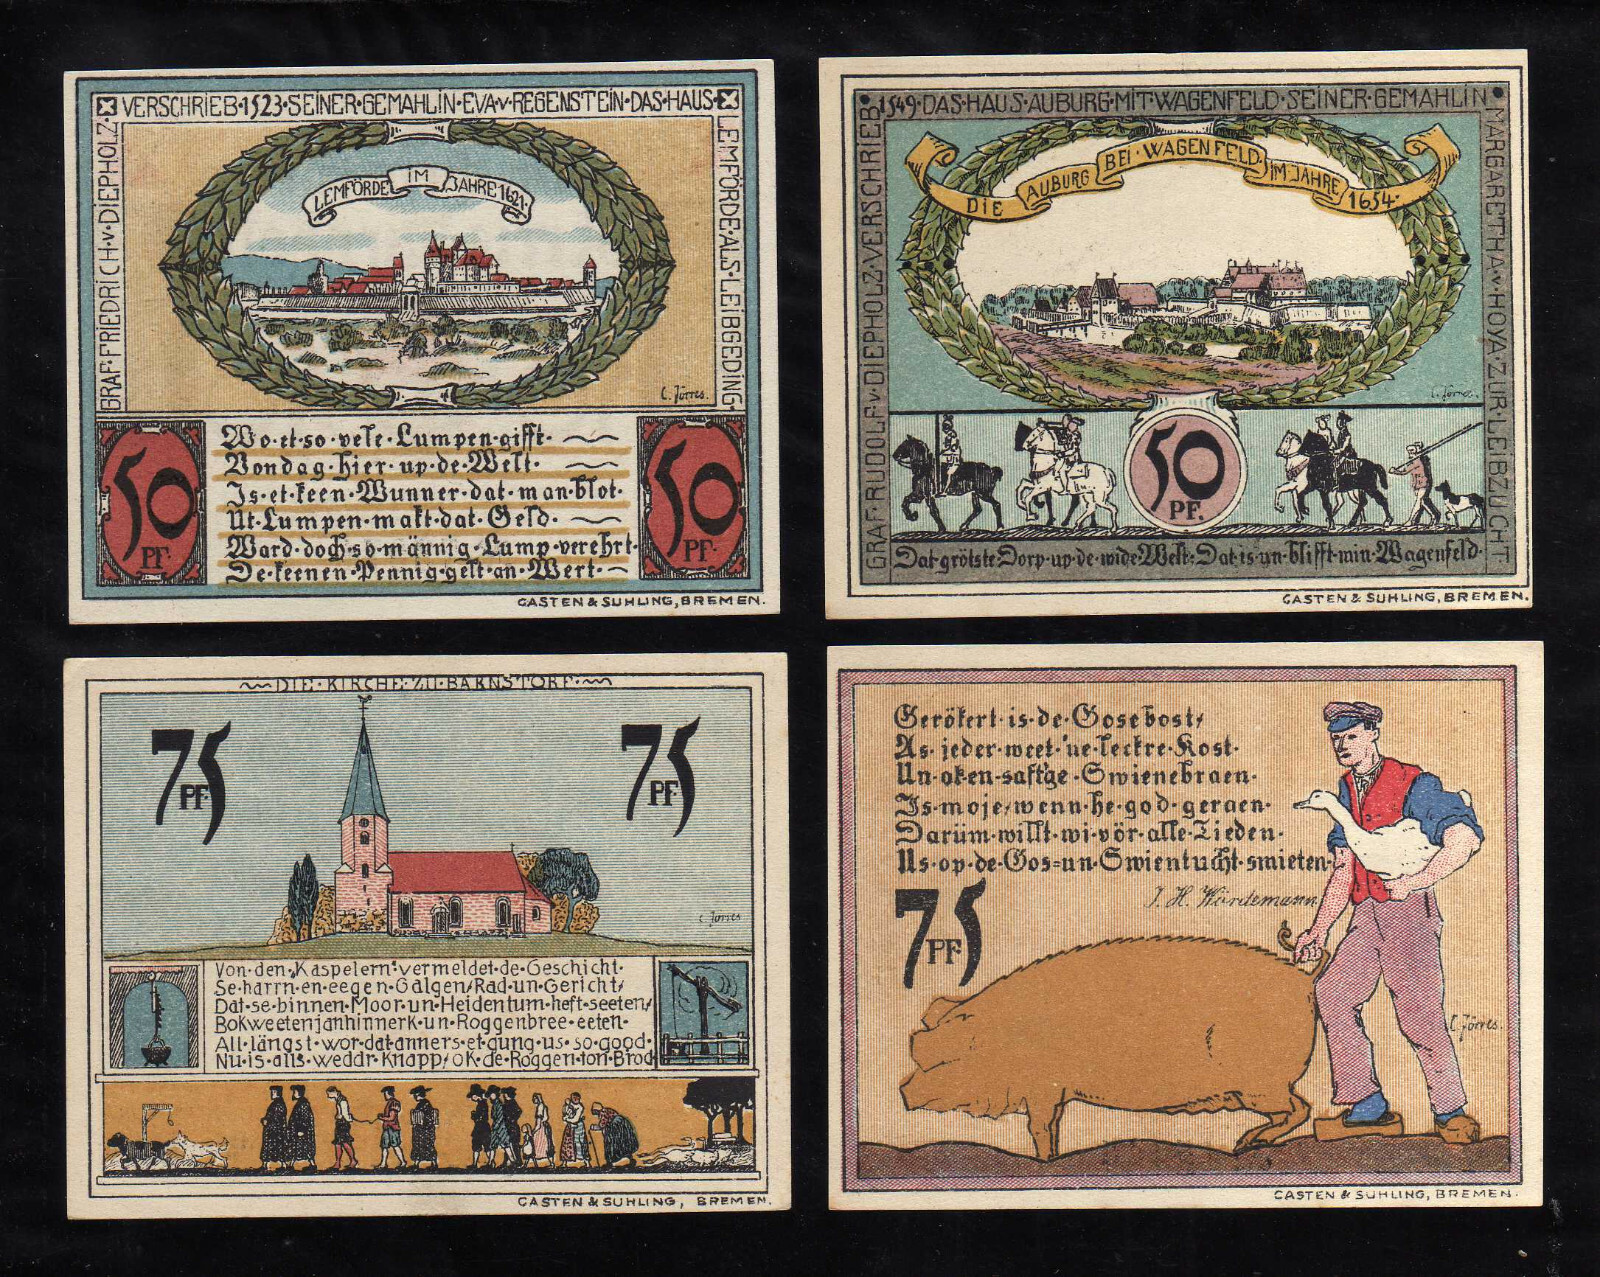 GRAF·FRIEDRICH·v·DIEPHOLZ·
VERSCHRIEB·1523·SEINER·GEMAHLIN·EVA·v·REGENSTEIN·DAS·HAUS·
LEMFÖRDE·ALS·LEIBGEDING·
LEMFÖRDE IM JAHRE 1621·
C. Jörres.
50 PF·
Wo·et·so·vele·Lumpen·gifft·
Vondag·hier·up·de·Welt·
Is·et·keen·Wunner·dat·man·blot·
Ut·Lumpen·makt·dat·Geld·
Ward·doch·so·männig·Lump·verehrt·
De·keenen·Pennig·gelt·an·Wert·
50 PF·
CASTEN & SUHLING, BREMEN.
GRAF·RUDOLF·v·DIEPHOLZ·VERSCHRIEB·
1549·DAS·HAUS·AUBURG·MIT·WAGENFELD·SEINER·GEMAHLIN·
MARGARETHA·v·HOYA·ZUR·LEIBZUCHT
DIE AUBURG BEI·WAGENFELD· IM·JAHRE 1654·
C. Jörres.
50
PF.
Dat·grötste·Dorp·up·de·wide·Welt·Dat·is·un·blifft·min·Wagenfeld·
CASTEN & SUHLING, BREMEN.
DIE·KIRCHE·ZU·BARNSTORF·
75 PF·
75 PF·
C Jörres
Von·den·„Kaspelern“·vermeldet·de·Geschicht·
Se·harrn·en·eegen·Galgen/Rad·un·Gericht/
Dat·se·binnen·Moor·un·Heidentum·heft·seeten/
Bokweetenjanhinnerk·un·Roggenbree·eeten·
All·längst·wor·dat·anners·et·gung·us·so·good·
Nu·is·alls·weddr·knapp/ok·de·Roggen·ton·Brod
CASTEN & SUHLING, BREMEN.
Gerökert·is·de·Gosebost/
As·jeder·weet·'ne·leckre·Kost·
Un·ok·en·saft'ge·Swienebraen·
Is·moje/wenn·he·god·geraen·
Darüm·willt·wi·vör·alle·Tieden·
Us·op·de·Gos=un·Swientucht·smieten·
J. H. Wördemann
75 PF·
C. Jörres.
CASTEN & SUHLING, BREMEN.